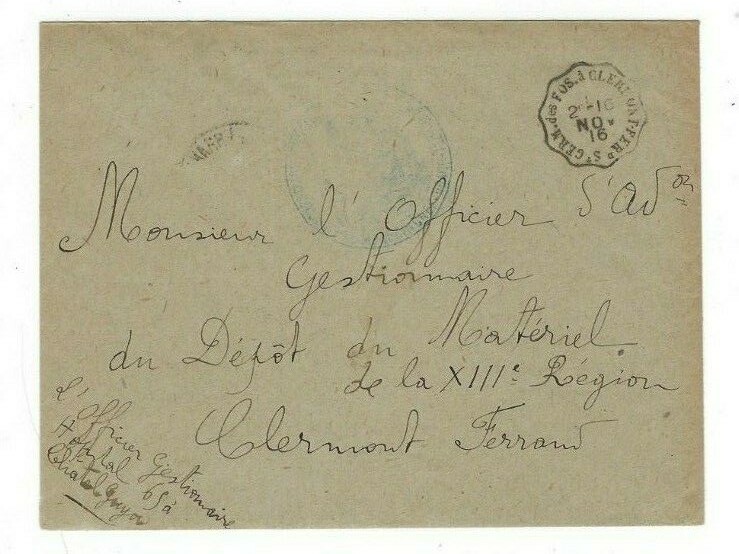 St GERM. des FOS. à CLERMONT-FERD
2E-16
NOV
16
Monsieur l'Officier d'Adon
Gestionnaire
du Dépôt du Matériel
de la XIIIe Région
Clermont Ferrand
L'Officier Gestionnaire
Hôpital 65 à
Chatel Guyon